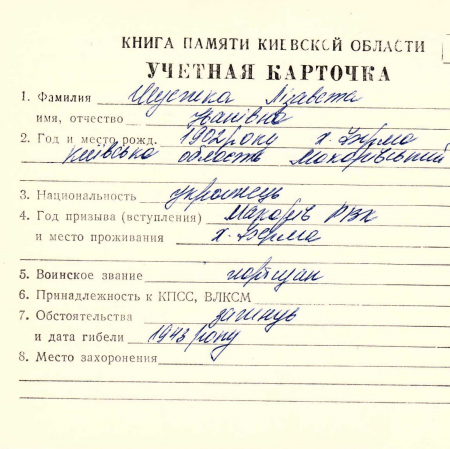 КНИГА ПАМЯТИ КИЕВСКОЙ ОБЛАСТИ
УЧЕТНАЯ КАРТОЧКА
1. Фамилия Лізавета
имя, отчество Іванівна
2. Год и место рожд. 1902 року х.
Київська область Макарівський
3. Национальность українець
4. Год призыва (вступления) РВК
и место проживания х.
5. Воинское звание партизан
6. Принадлежность к КПСС, ВЛКСМ
7. Обстоятельства загинув
и дата гибели 1943 року
8. Место захоронения